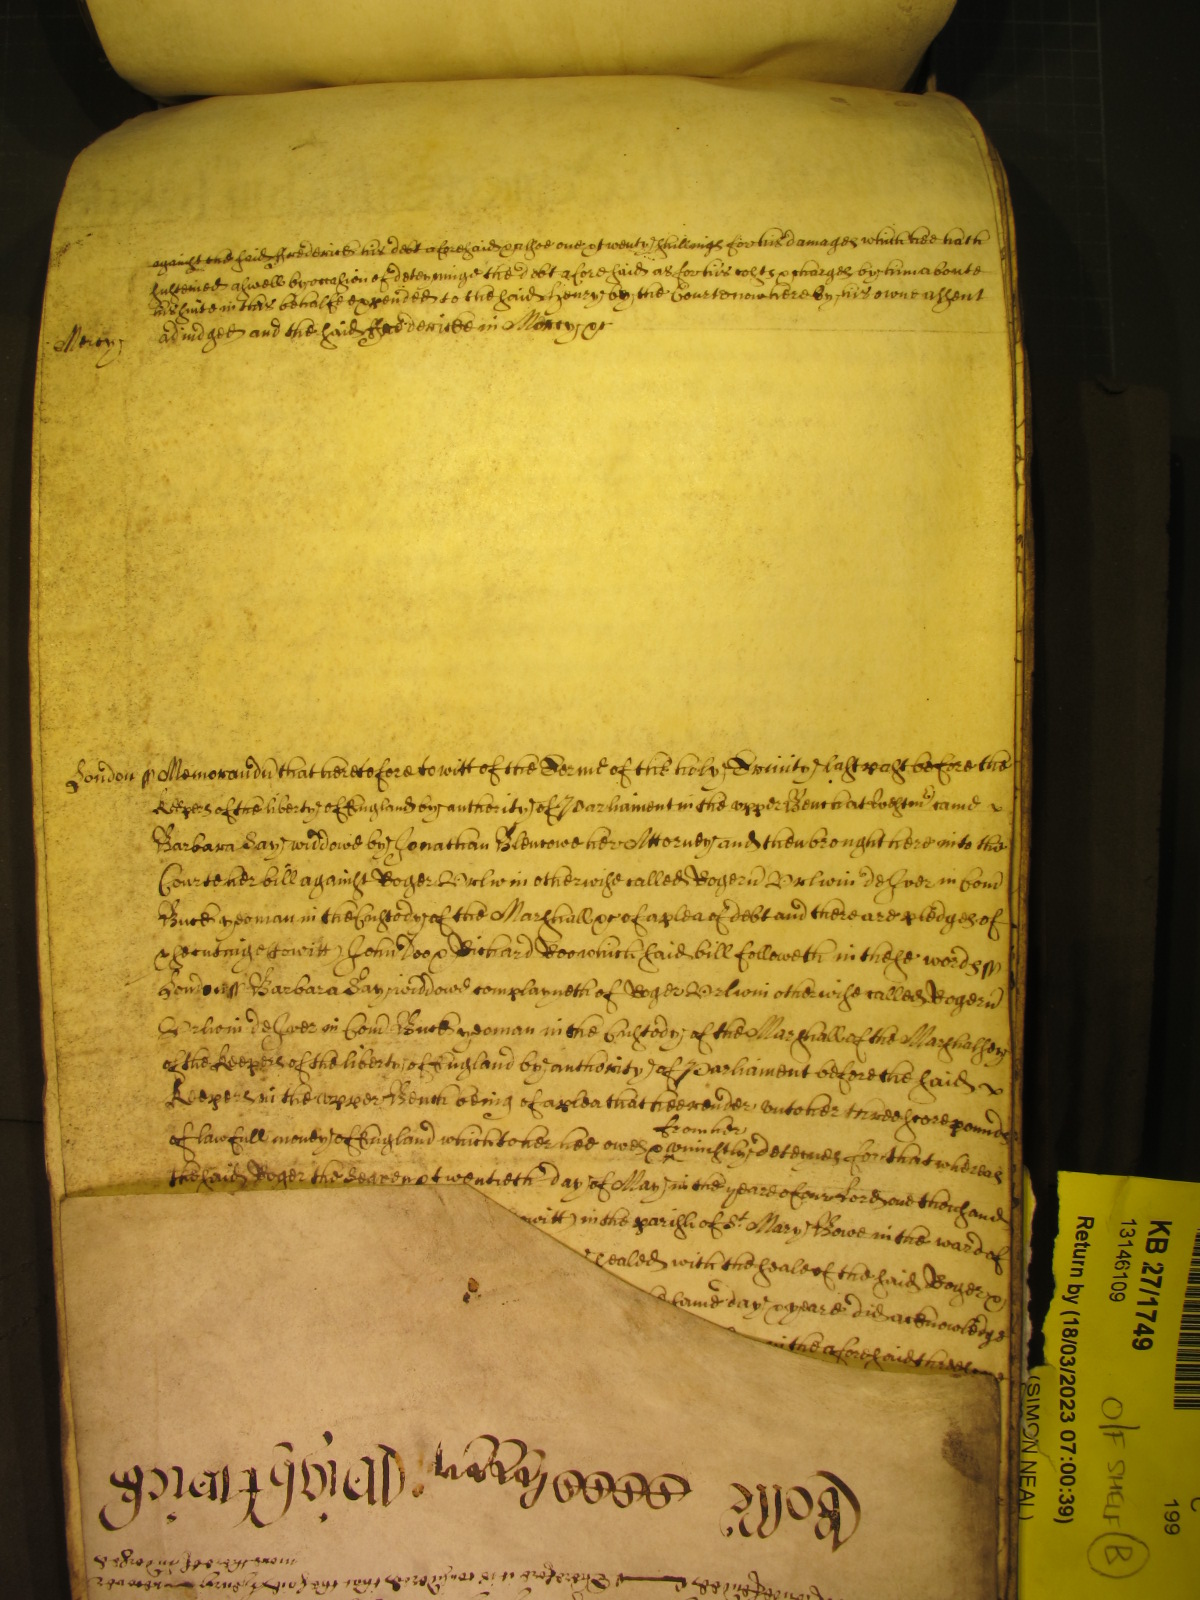 against the said Frederick his debt aforesaid & alsoe one & twenty shillings for his damages which hee hath
susteined aswell by occasion of deteyninge the debt aforesaid as for his costs & charges by him aboute
his suite in this behalfe expended to the said Henry by the Courte nowe here by his owne assent
Mercy adiudged and the said Fredericke in Mercy &c
London ss Memorandu that heretofore to witt of the Terme of the holy Trinity last past before the
Keepers of the liberty of England by authority of Parliament in the upper Bench at Westmr came
Barbara Say widdowe by Jonathan Blencowe her Attorney and then brought here into the
Courte her bill against Roger otherwise called Rogeru de Iver in Com
Buck yeoman in the Custody of the Marshall &c of a plea of debt and there are pledges of
to witt John Doo & Richard Roo which said bill followeth in these words ss
London ss Barbara Say widdowe complayneth of Roger otherwise called Rogeru
de Iver in Com Buck yeoman in the Custody of the Marshall of the Marshalsey
of the Keepers of the liberty of England by authority of Parliament before the said
Keepers in the upper Bench being of a plea that hee render unto her threescore pounds
of lawfull money of England which to her hee owes & from her uniustly deteynes for that whereas
the said Roger the seaven & twentieth day of May in the yeare of our Lord one thousand
witt) in the parish of St Mary Bowe in the ward of
sealed with the seale of the said Roger &
same day & yeare did acknowledge
in the aforesaid threes
Rolle
Wightwick
Therefore it is considered that the said Henry recover
KB 27/1749
13146109
Return by (18/03/2023 07:00:39)
(SIMON NEAL)
O/F SHELF B
C
199